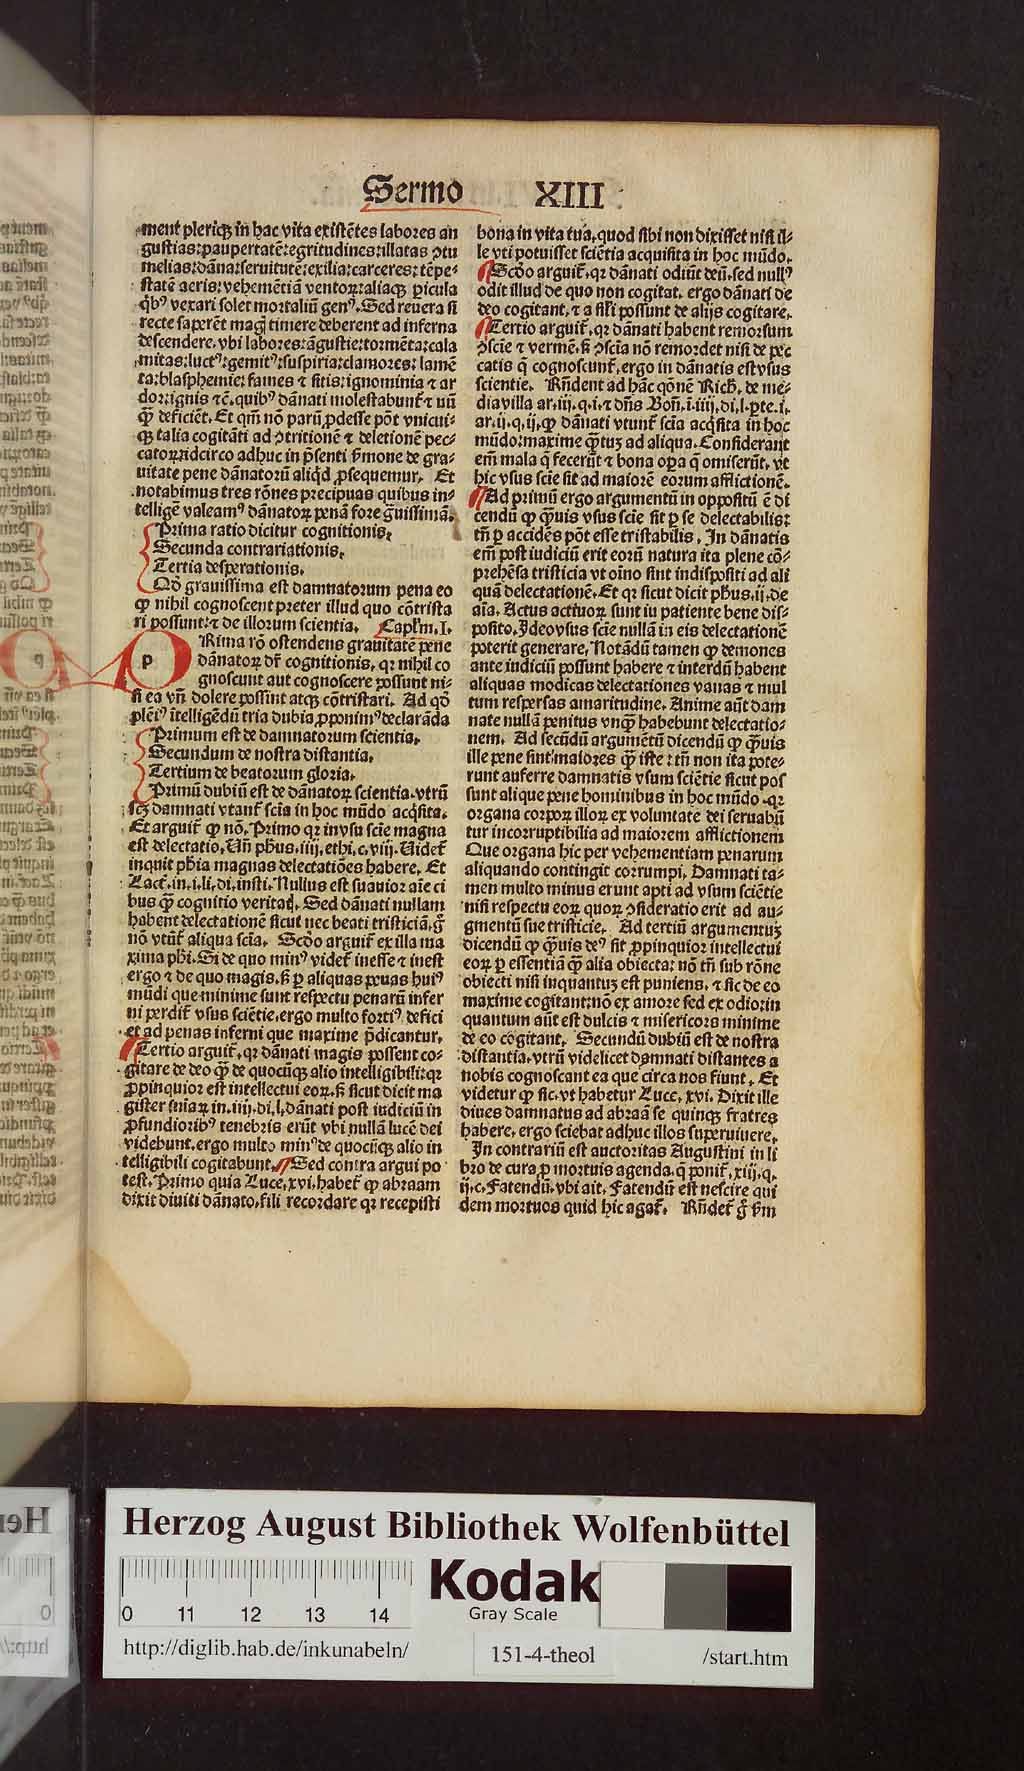 Sermo XIII
ment pleriqꝫ in hac vita existētes labores an
gustias: paupertatē: egritudines: illatas ↄtu
melias: dāna: seruitutē: exilia: carceres: tēpe-
statē aeris: vehemētiā ventoꝝ: aliaqꝫ ꝑicula
qͥbꝰ vexari solet mortaliū genꝰ. Sed reuera si
recte saperēt magͥ timere deberent ad inferna
descendere. vbi labores: āgustie: tormēta: cala
mitas: luctꝰ: gemitꝰ: suspiria: clamores: lamē
ta: blasphemie: fames ⁊ sitis: ignominia ⁊ ar
dor: ignis ⁊ē. quibꝰ dānati molestabunt̄ ⁊ nū
ꝙ̄ deficiēt. Et qm̄ nō parū ꝓdesse pōt vnicui-
qꝫ talia cogitāti ad ↄtritionē ⁊ deletionē pec-
catoꝝ: idcirco adhuc in p̄senti s̄mone de gra-
uitate pene dānatorū aliqͥd ꝓsequemur. Et
notabimus tres rōnes precipuas quibus in-
telligē valeamꝰ dānatoꝝ penā fore gͣuissimā.
Prima ratio dicitur cognitionis.
Secunda contrariationis.
Tertia desperationis.
Qō grauissima est damnatorum pena eo
ꝙ nihil cognoscent preter illud quo cōtrista
ri possunt: ⁊ de illorum scientia. Caplm̄. I.
p Rima rō ostendens grauitatē pene
dānatoꝝ dr̄ cognitionis. qꝛ nihil co
gnoscunt aut cognoscere possunt ni-
si ea vn̄ dolere possint atqꝫ cōtristari. Ad qō
pleniꝰ ītelligēdū tria dubia ꝓponimꝰ declarāda
Primum est de damnatorum scientia.
Secundum de nostra distantia.
Tertium de beatorum gloria.
Primū dubiū est de dānatoꝝ scientia. vtrū
scꝫ damnati vtant̄ scīa in hoc mūdo acqͥsita.
Et arguit̄ ꝙ nō. Primo qꝛ in vsu scīe magna
est delectatio. Un̄ phūs. iiij. ethi. c. viij. Uidet̄
inquit phīa magnas delectatiōes habere. Et
Lact̄. in. i. li. di. insti. Nullus est suauior aīe ci
bus ꝙ̄ cognitio veritatꝭ. Sed dānati nullam
habent delectationē sicut nec beati tristiciā. gͦ
nō vtūt̄ aliqua scīa. Scd̄o arguit̄ ex illa ma
xima phī. Si de quo minꝰ videt̄ inesse ⁊ inest
ergo ⁊ de quo magis. s̄ ꝑ aliquas ꝑuas huiꝰ
mūdi que minime sunt respectu penarū infer
ni perdit̄ vsus sciētie. ergo multo fortiꝰ defici
et ad penas inferni que maxime p̄dicantur.
Tertio arguit̄. qꝛ dānati magis possent co-
gitare de deo ꝙ̄ de quocūqꝫ alio intelligibili: qꝛ
ꝓpinquior est intellectui eoꝝ. s̄ sicut dicit ma
gister sniāꝝ in. iiij. di. l. dānati post iudiciū in
ꝓfundioribꝰ tenebris erūt vbi nullā lucē dei
videbunt. ergo multo minꝰ de quocūqꝫ alio in
telligibili cogitabunt. Sed contra argui po
test. Primo quia Luce. xvi. habet̄ ꝙ abraam
dixit diuiti dānato. fili recordare qꝛ recepisti
bona in vita tua. quod sibi non dixisset nisi il-
le vti potuisset sciētia acquisita in hoc mūdo.
Scd̄o arguit̄. qꝛ dānati odiūt deū. sed nullꝰ
odit illud de quo non cogitat. ergo dānati de
deo cogitant. ⁊ a sīli possunt de alijs cogitare.
Tertio arguit̄. qꝛ dānati habent remorsum
ↄscīe ⁊ vermē. s̄ ↄscīa nō remordet nisi de pec
catis q̄ cognoscunt̄. ergo in dānatis est vsus
scientie. Rn̄dent ad hāc qōnē Rich. de me-
diauilla ar. iij. q. i. ⁊ dn̄s Bon̄. ī. iiij. di. l. pte. i.
ar. ij. q. ij. ꝙ dānati vtunt̄ scīa acqͥsita in hoc
mūdo: maxime qͣtuꝫ ad aliqua. Considerant
em̄ mala q̄ fecerūt ⁊ bona oꝑa q̄ omiserūt. vt
hic vsus scīe sit ad maiorē eorum afflictionē.
Ad primū ergo argumentū in oppositū ē di
cendū ꝙ qͣuis vsus scīe sit ꝑ se delectabilis:
tn̄ ꝑ accidēs pōt esse tristabilis. In dānatis
em̄ post iudiciū erit eorū natura ita plene cō-
prehēsa tristicia vt oīno sint indispositi ad ali
quā delectationē. Et qꝛ sicut dicit phūs. ij. de
aīa. Actus actiuoꝝ sunt iu patiente bene dis-
posito. Ideo vsus scīe nullā in eis delectationē
poterit generare. Notādū tamen ꝙ demones
ante iudiciū possunt habere ⁊ interdū habent
aliquas modicas delectationes vanas ⁊ mul
tum respersas amaritudine. Anime aūt dam
nate nullā penitus vnqͣ habebunt delectatio-
nem. Ad secūdū argumētū dicendū ꝙ qͣuis
ille pene sint maiores ꝙ̄ iste: tn̄ non ita pote-
runt auferre damnatis vsum sciētie sicut pos
sunt alique pene hominibus in hoc mūdo. qꝛ
organa corpoꝝ illoꝝ ex voluntate dei seruabū
tur incorruptibilia ad maiorem afflictionem
Que organa hic per vehementiam penarum
aliquando contingit corrumpi. Damnati ta-
men multo minus erunt apti ad vsum sciētie
nisi respectu eoꝝ quoꝝ ↄsideratio erit ad au-
gmentū sue tristicie. Ad tertiū argumentuꝫ
dicendū ꝙ qͣuis deꝰ sit ꝓpinquior intellectui
eoꝝ ꝑ essentiā ꝙ̄ alia obiecta: nō tn̄ sub rōne
obiecti nisi inquantuꝫ est puniens. ⁊ sic de eo
maxime cogitant: nō ex amore sed ex odio: in
quantum aūt est dulcis ⁊ misericors minime
de eo cogitant. Secundū dubiū est de nostra
distantia. vtrū videlicet damnati distantes a
nobis cognoscant ea que circa nos fiunt. Et
videtur ꝙ sic. vt habetur Luce. xvi. Dixit ille
diues damnatus ad abraā se quinqꝫ fratres
habere. ergo sciebat adhuc illos superuiuere.
In contrariū est auctoritas Augustini in li
bro de cura ꝑ mortuis agenda. q̄ ponit̄. xiij. q.
ij. c. Fatendū. vbi ait. Fatendū est nescire qui
dem mortuos quid hic agat̄. Rn̄det̄ gͦ s̄m
Herzog August Bibliothek Wolfenbüttel
Kodak
Gray Scale
0 11 12 13 14
http://diglib.hab.de/inkunabeln/ 151-4-theol /start.htm